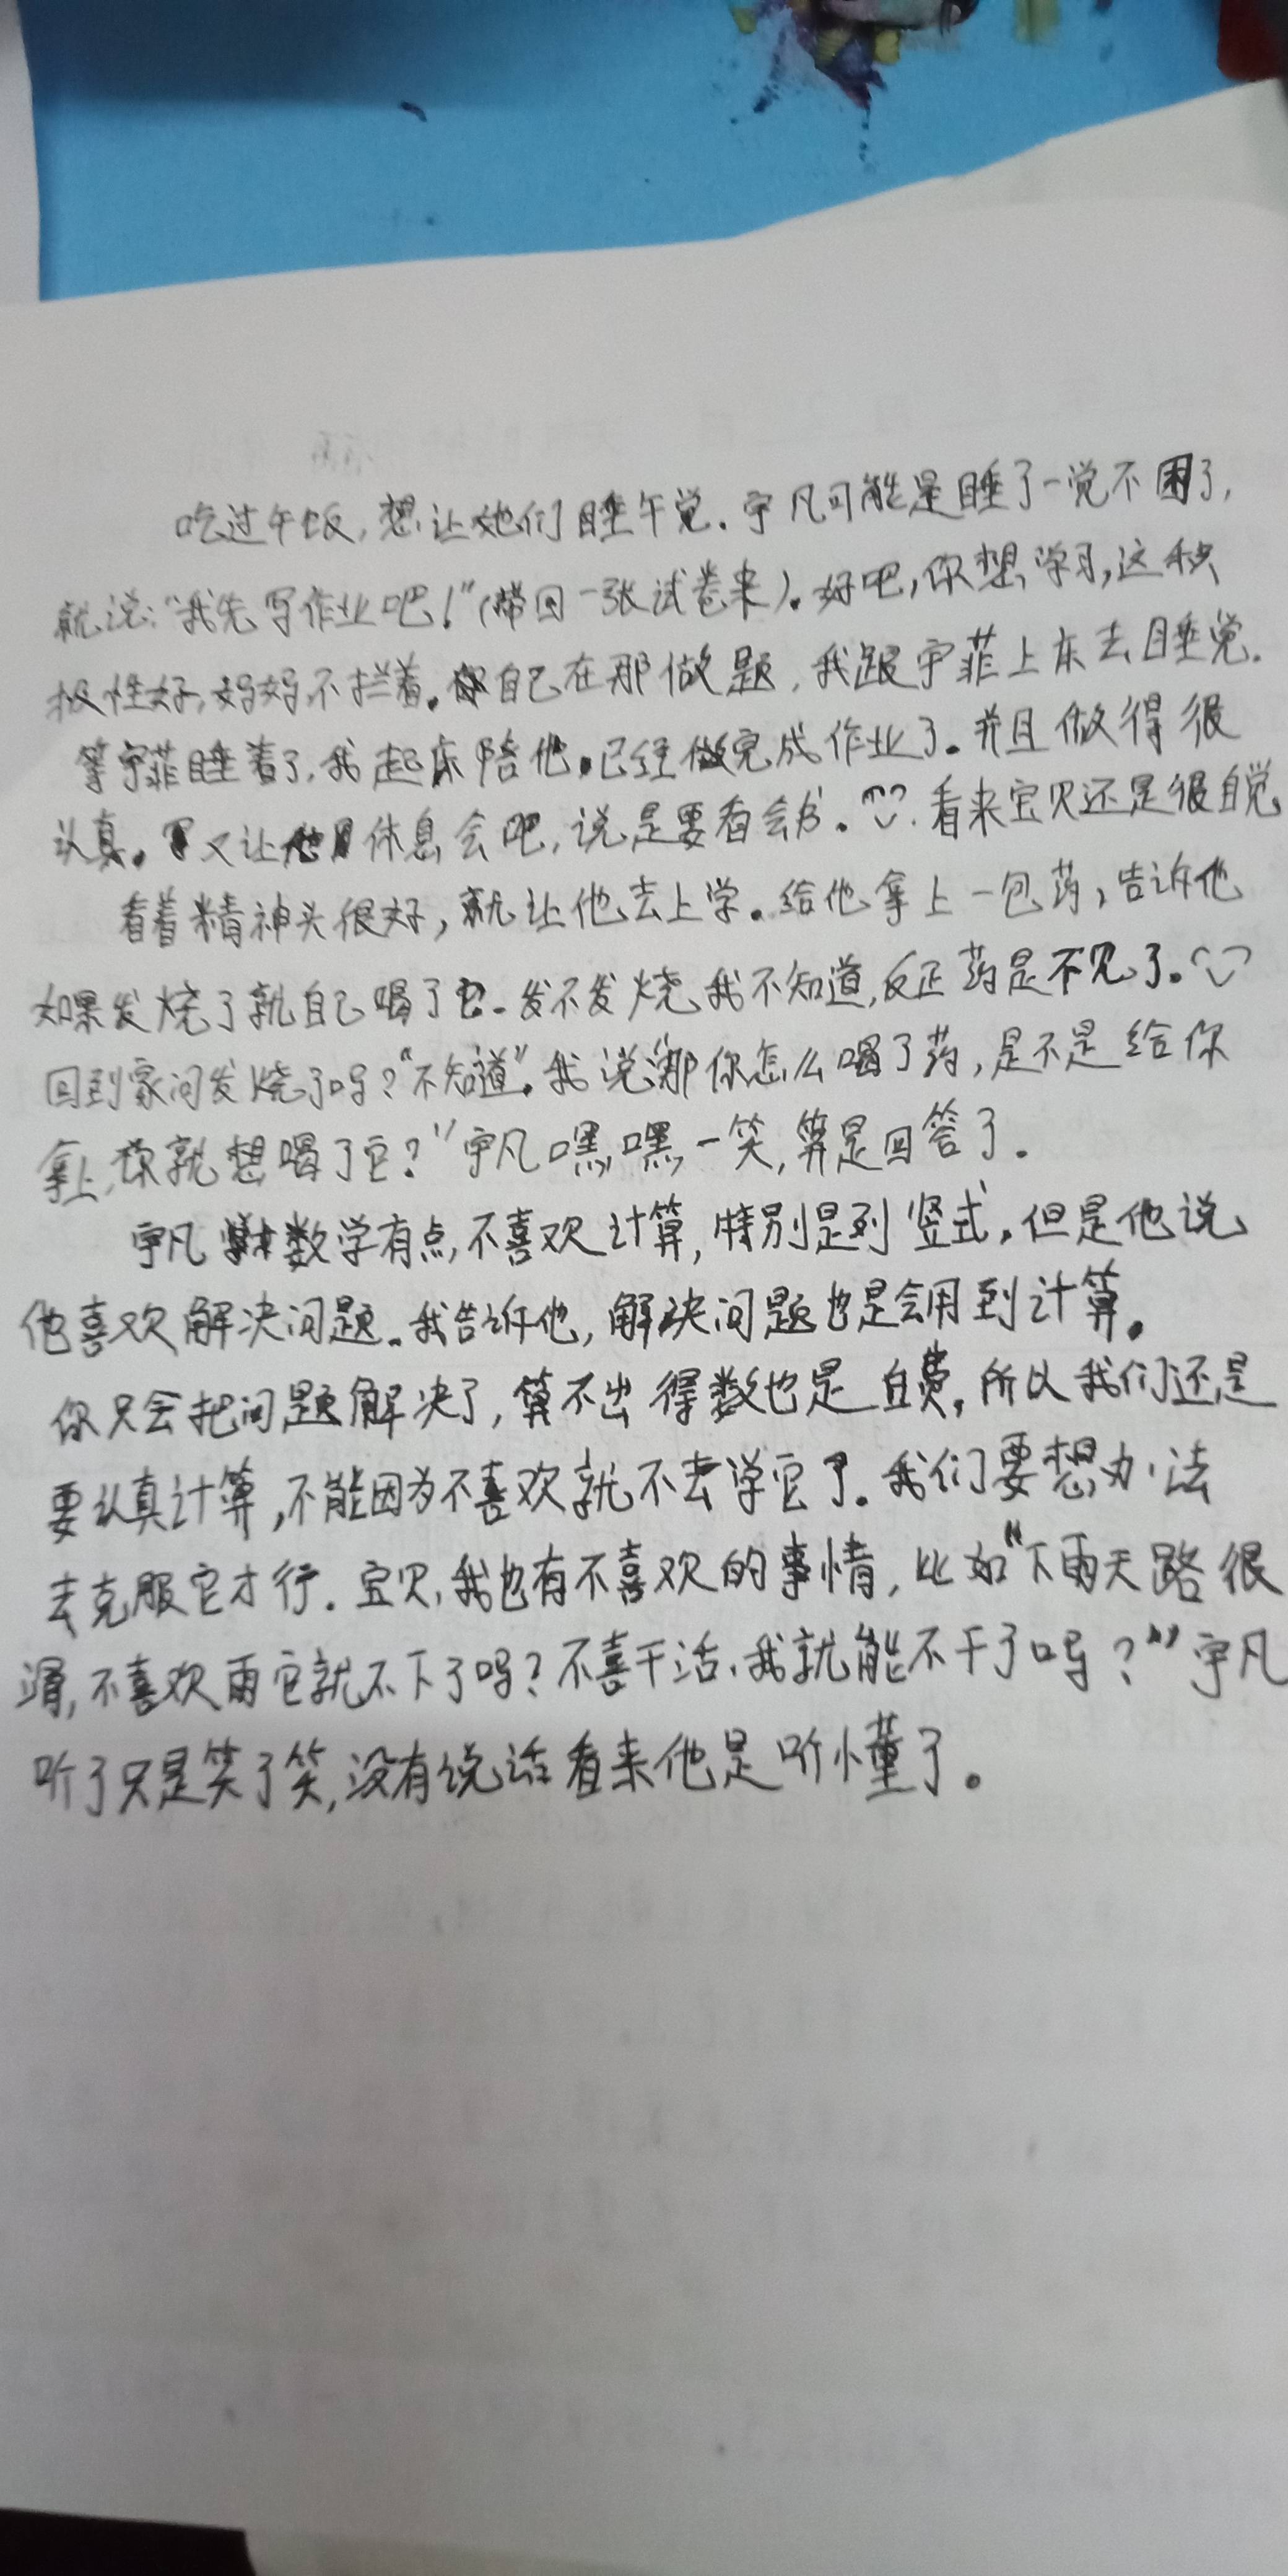 吃过午饭，想让她们睡午觉。宇凡可能是睡了一觉不困了，
就说：“我先写作业吧！”（带回一张试卷来）。好吧，你想学习，这种
极性好，妈妈不拦着。自己在那做题，我跟宇菲上床去睡觉。
等宇菲睡着了，我起床陪他。已经做完成作业了。并且做得很
认真。又让他休息会吧，说是要看会书。看来宝贝还是很自觉
看着精神头很好，就让他去上学。给他拿上一包药，告诉他
如果发烧了就自己喝了它。发不发烧我不知道，反正药是不见了。
回到家问发烧了吗？“不知道”。我说“那你怎么喝了药，是不是给你
拿上，你就想喝了它？”宇凡嘿嘿一笑，算是回答了。
宇凡数学有点，不喜欢计算，特别是列竖式。但是他说
他喜欢解决问题。我告诉他，解决问题也是会用到计算。
你只会把问题解决了，算不出得数也是白费。所以我们还是
要认真计算，不能因为不喜欢就不去学它了。我们要想办法
去克服它才行。宝贝，我也有不喜欢的事情，比如“下雨天路很
滑，不喜欢雨它就不下了吗？不喜干活，我就能不干了吗？”宇凡
听了只是笑了笑，没有说话看来他是听懂了。